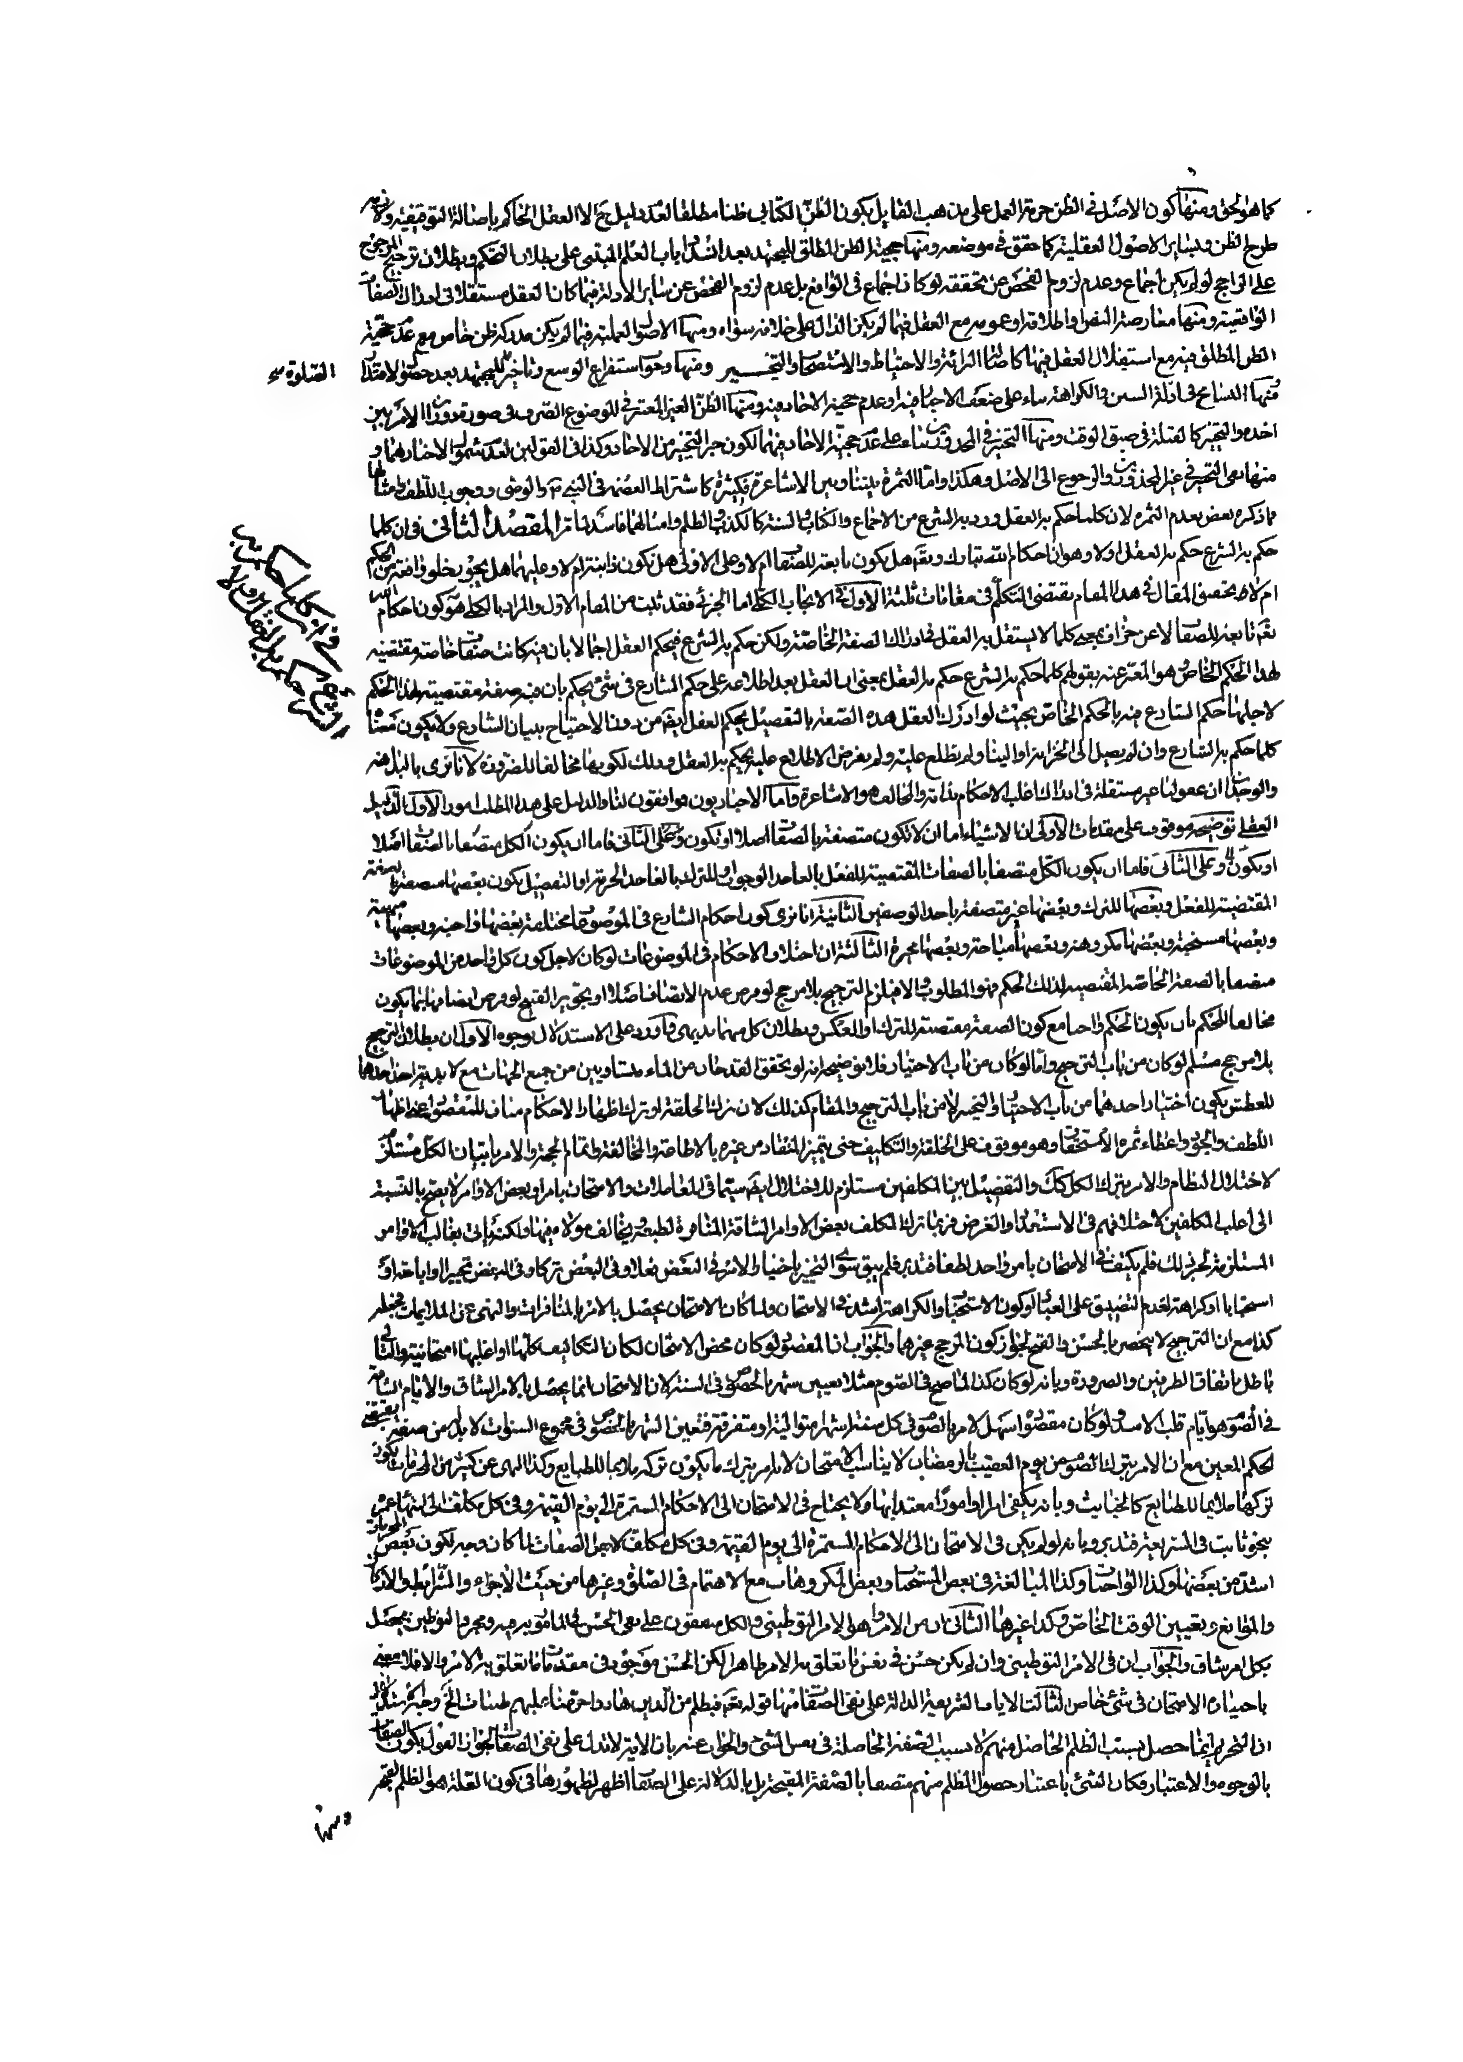 كما هو الحق ومنها كون الاصل في الظن حرمة العمل على مذهب القايل بكون الظن الكتابي ظنا مطلقا لعدم دليل ح الا العقل الحاكم باصالة التوقيفية ولا يجوز
طرح الظن وساير الاصول العقلية كما حقق في موضعه ومنها حجية الظن المطلق للمجتهد بعد انسداد باب العلم المبتني على بطلان التحكم وبطلان ترجيح المرجوح
على الراجح لو لم يكن اجماع وعدم لزوم الفحص عن تحققه لو كان اجماع في الواقع بل عدم لزوم الفحص عن ساير الادلة فيما كان العقل مستقلا في ادراك الصفات
الواقعية ومنها معارضة النص واطلاقه او عمومه مع العقل فيما لم يكن الدال على خلافه سواه ومنها الاصول العملية فيما لم يكن مدركه ظن خاص مع عدم حجية
الظن المطلق فيه مع استقلال العقل فيها كاصالة البرائة والاحتياط والاستصحاب والتخيير ومنها وجوب استفراغ الوسع وتاخير للمجتهد بعد حصول الاقتدار
الصلوة
ومنها التسامح في ادلة السنن والكراهة بناء على ضعف الاخبار فيه او عدم حجية الاحاد فيه ومنها الظن الغير المعتبر في الموضوع الصرف في صورة دوران الامر بين
اخذه والتخيير كالقبلة في ضيق الوقت ومنها التخيير في المحذورين بناء على عدم حجية الاحاد فيهما لكون خبر التخيير من الاحاد وكذا في القولين لعدم شمول الاخبار لهما و
منها نفي التخيير في غير المحذورين والرجوع الى الاصل وهكذا واما الثمرة بيننا وبين الاشاعرة فكثيرة كاشتراط العصمة في النبي ص والوصي ووجوب اللطف وامثالها
فما ذكره بعض بعدم الثمرة لان كلما حكم به العقل ورد به الشرع من الاجماع والكتاب والسنة كالكذب والظلم وامثالهما فاسد لما مر المقصد الثاني في ان كلما
حكم به الشرع حكم به العقل او لا وهو ان احكام الله تبارك وتعم هل يكون تابعة للصفات ام لا وعلى الاولى هل تكون ذاتية ام لا وعليهما هل يجوز خلو واقعة من الحكم
في ان كلما حكم به
الشرع حكم به العقل او لا
ام لا وتحقيق المقال في هذا المقام يقتضي التكلم في مقامات ثلثة الاول في الايجاب الكلي اما الجزئي فقد ثبت من المقام الاول والمراد بالكلي هو كون احكام الله
تعم تابعة للصفات لا عن جزاف بمعنى كلما لا يستقل به العقل في ادراك الصفة الخاصة ولكن حكم به الشرع فيحكم العقل اجمالا بان فيه كانت صفات خاصة مقتضية
لهذا الحكم الخاص وهو المعبر عنه بقولهم كلما حكم به الشرع حكم به العقل بمعنى ان العقل بعد اطلاعه على حكم الشارع في شئ يحكم بان فيه صفة مقتضية لهذا الحكم
لاجلها حكم الشارع فيه بالحكم الخاص بحيث لو ادرك العقل هذه الصفة بالتفصيل يحكم العقل ايضا من دون الاحتياج ببيان الشارع ولا يكون معناه
كلما حكم به الشارع وان لم يصل الى الخزانة او الينا ولم يطلع عليه ولم يفرض الاطلاع عليه يحكم به العقل وذلك لكونها مخالفا للضرورة لانا نرى بالبداهة
والوجدان ان عقولنا غير مستقلة في ادراك اغلب الاحكام بذاته والمخالف هو الاشاعرة واما الاخباريون موافقون لنا والدليل على هذا المطلب امور الاول الدليل
العقلي توضيحه موقوف على مقدمات الاولى ان الاشياء اما ان لا تكون متصفة بالصفات اصلا او تكون وعلى الثاني فاما ان يكون الكل متصفا بالصفات اصلا
او تكون وعلى الثاني فاما ان يكون الكل متصفا بالصفات المقتضية للفعل بالغا حد الوجوب او للترك بالغا حد الحرمة او التفصيل بكون بعضها متصفة بالصفة
المقتضية للفعل وبعضها للترك وبعضها غير متصفة باحد الوصفين الثانية انا نرى كون احكام الشارع في الموضوعات مختلفة بعضها واجبة وبعضها
وبعضها مستحبة وبعضها مكروهة وبعضها مباحة وبعضها محرمة الثالثة ان اختلاف الاحكام في الموضوعات لو كان لاجل كون كل واحد من الموضوعات
متصفا بالصفة الخاصة المقتضية لذلك الحكم فهو المطلوب والا فيلزم الترجيح بلا مرجح لو فرض عدم الاتصاف اصلا او تجويز القبيح لو فرض اتصافها بما يكون
مخالفا للحكم بان يكون الحكم واجبا مع كون الصفة مقتضية للترك او العكس وبطلان كل منهما بديهي واورد على الاستدلال وجوه الاول ان بطلان الترجيح
بلا مرجح مسلم لو كان من باب الترجيح واما لو كان من باب الاختيار فلا توضيحه انه لو تحقق القدحان من الماء متساويين من جميع الجهات مع لابدية اخذ احدهما
للعطش يكون اختيار احدهما من باب الاختيار والتخيير لا من باب الترجيح والمقام كذلك لان ترك الخلقة او ترك اظهار الاحكام مناف للمقصود عند اظهار
اللطف والجود واعطاء ثمرة الاستحقاق وهو موقوف على الخلقة والتكليف حتى يتميز المنقاد من غيره بالاطاعة والمخالفة واتمام الحجة والامر باتيان الكل مستلزم
لاختلال النظام والامر بترك الكل كك والتفضيل بين المكلفين مستلزم للاختلال ايضا سيما في المعاملات والامتحان بامر او بعض الاوامر لا يصح بالنسبة
الى اغلب المكلفين لاختلافهم في الاستعداد والغرض فربما ترك المكلف بعض الاوامر الشاقة المنافرة لطبعه ويخالف مولاه فيها ولكنه ياتي بغالب الاوامر
المستلزمة لغير ذلك فلم يكتف في الامتحان بامر واحد لطفا فتدبر فلم يبق سوى التخيير باختيار الامر في البعض فعلا وفي البعض تركا وفي البعض تخييرا واباحة او
استحبابا او كراهة لعدم التضييق على العباد وكون الاستحباب والكراهة اشد في الامتحان ولما كان الامتحان يحصل بالامر بالمنافرات والنهي عن الملايمات فجعله
كذا مع ان الترجيح لا ينحصر بالحسن والقبح لجواز كون المرجح غيرهما والجواب ان المقصود لو كان محض الامتحان لكان التكاليف كلها او اغلبها امتحانية والتالي
باطل باتفاق الطرفين والضرورة وبانه لو كان كذا لما صح في الصوم مثلا تعيين شهر بالخصوص في السنة لان الامتحان انما يحصل بالامر الشاق والايام الشاقة
في الصوم هو ايام قلب الاسد ولو كان مقصوده اسهل لامر بالصوم في كل سنة اشهر متوالية او متفرقة فتعين الشهر بالخصوص في مجموع السنوات لا بد من صفة يقتضي
لحكم المعين مع ان الامر بترك الصوم من يوم العقيب بالرمضان لا يناسب الامتحان لان الامر بترك ما يكون تركه ملايما للطبايع وكذا النهي عن كثير من المحرمات يكون
تركها ملايما للطبايع كالخبائث وبانه يكفي امرا او امورا معتدا بها ولا يحتاج في الامتحان الى الاحكام المستمرة الى يوم القيمة وفي كل مكلف الى انتهاء عمره
بنحو ثابت في الشريعة فتدبر وبانه لو لم يكن في الامتحان الى الاحكام المستمرة الى يوم القيمة وفي كل مكلف لاجل الصفات لما كان وجه لكون بعض المحرمات
اشد من بعضها وكذا الواجبات وكذا المبالغة في بعض المستحبات وبعض المكروهات مع الاهتمام في الصلوة وغيرها من حيث الاجزاء والشرايط والاركان
والموانع وتعيين الوقت الخاص وكذا غيرها الثاني ان من الاوامر هو الامر التوطيني والكل متفقون على نفي الحسن في المامور به فيه ومجرد التوطين يحصل
بكل امر شاق والجواب ان في الامر التوطيني وان لم يكن حسن في نفس ما تعلق به الامر ظاهرا لكن الحسن موجود في مقدمات ما تعلق به الامر والا فلا معنى
باختيار الامتحان في شئ خاص الثالث الايات الشريفة الدالة على نفي الصفات منها قوله تعم فبظلم من الذين هادوا حرمنا عليهم طيبات الخ وجه
ان التحريم انما حصل بسبب الظلم الحاصل منهم لا بسبب الصفة الحاصلة في نفس الشئ والجواب عنه بان الاية لا تدل على نفي الصفات لجواز القول بكون الصفات
بالوجوه والاعتبار فكان الشئ باعتبار حصول الظلم منهم متصفا بالصفة المقبحة بل بالدلالة على الصفات اظهر لظهورها في كون العلة هو الظلم
ومنها